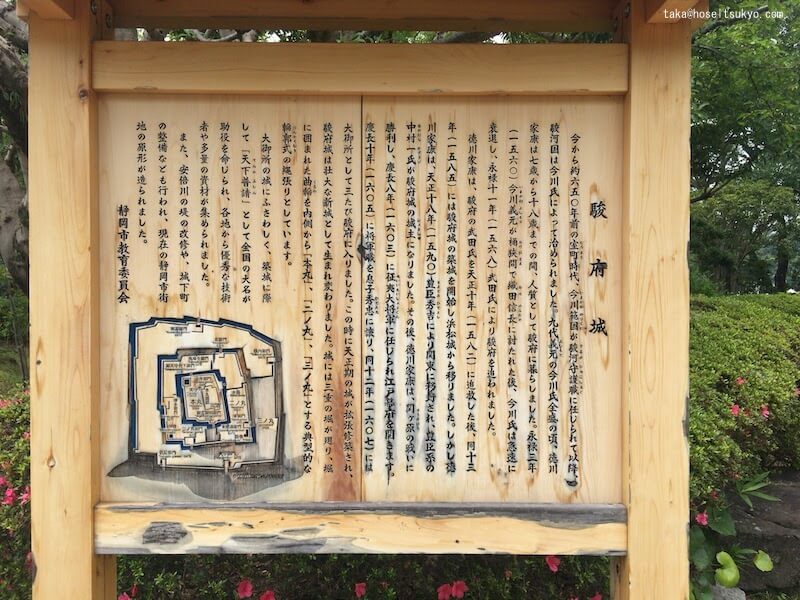 taka@hoseitsukyo.com
駿府城
今から約六五〇年前の室町時代、今川範国が駿河守護職に任じられて以降、
駿河国は今川氏によって治められました。九代義元の今川氏全盛の頃、徳川
家康は七歳から十八歳までの間、人質として駿府に暮らしました。永禄三年
(一五六〇)今川義元が桶狭間で織田信長に討たれた後、今川氏は急速に
衰退し、永禄十一年(一五六八)武田氏により駿府を追われました。
徳川家康は、駿府の武田氏を天正十年(一五八二)に追放した後、同十三
年(一五八五)には駿府城の築城を開始し浜松城から移りました。しかし徳
川家康は、天正十八年(一五九〇)豊臣秀吉により関東に移封され、豊臣系の
中村一氏が駿府城の城主になりました。その後、徳川家康は、関ヶ原の戦いに
勝利し、慶長八年(一六〇三)に征夷大将軍に任じられ江戸幕府を開きます。
慶長十年(一六〇五)に将軍職を息子秀忠に譲り、同十二年(一六〇七)には
大御所として三たび駿府に入りました。この時に天正期の城が拡張修築され、
駿府城は壮大な新城として生まれ変わりました。城には三重の堀が廻り、堀
に囲まれた曲輪を内側から「本丸」、「二ノ丸」、「三ノ丸」とする典型的な
輪郭式の縄張りとしています。
大御所の城にふさわしく、築城に際
して「天下普請」として全国の大名が
助役を命じられ、各地から優秀な技術
者や多量の資材が集められました。
また、安倍川の堤の改修や、城下町
の整備なども行われ、現在の静岡市街
地の原形が造られました。
静岡市教育委員会
本丸
二ノ丸
三ノ丸